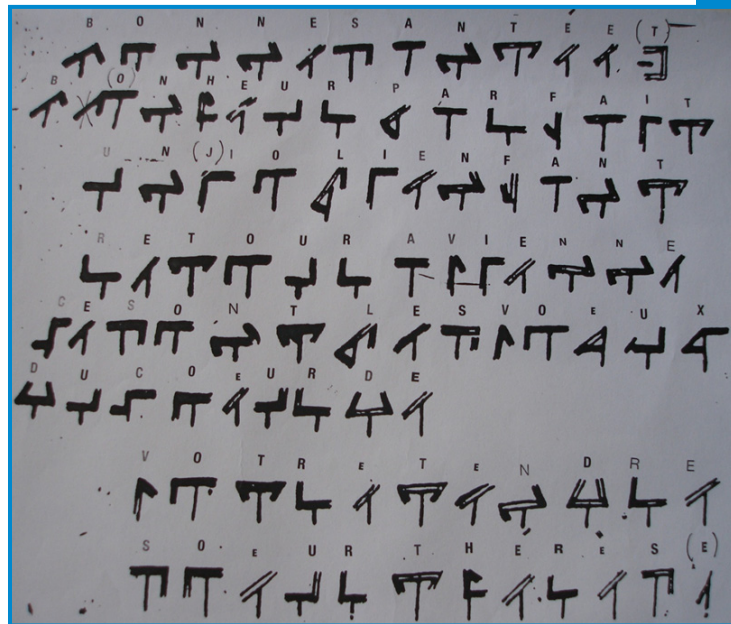 B O N N E S A N T E E (T)
B (O) N H E U R P A R F A I T
U N (J) I O L I E N F A N T
R E T O U R A V I E N N E
C E S O N T L E S V O E U X
D U C O E U R D E
V O T R E T E N D R E
S O E U R T H E R E S (E)